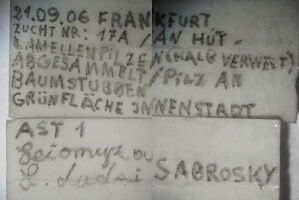 21.09.06 FRANKFURT
ZUCHT NR: 17A / AN HUT-
LAMELLENPILZEN (HALB VERWELT)
ABGESAMMELT / PILZ AN
BAUMSTUBBEN
GRÜNFLÄCHE INNENSTADT
AST 1
Geiomyza
L. dudai SABROSKY